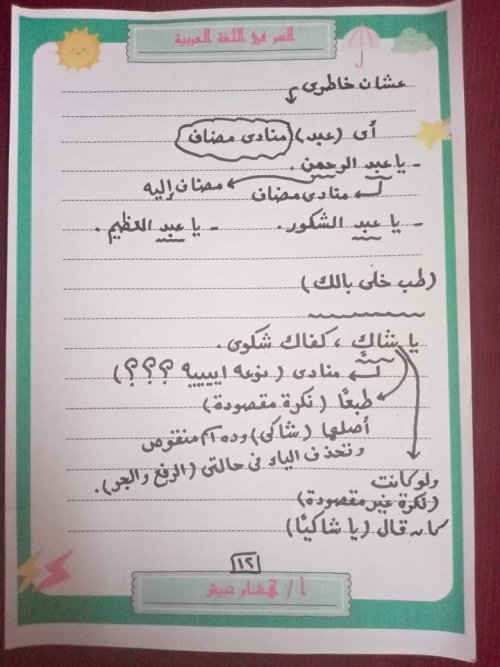 السر في اللغة العربية
عشان خاطرى
أى (عبد) منادى مضاف
- يا عبد الرحمن.
منادى مضاف
مضاف إليه
- يا عبد الشكور.
- يا عبد العظيم.
(طب خلى بالك)
يا شاكٍ ، كفاك شكوى.
منادى (نوعه اييييه ؟؟؟)
طبعًا (نكرة مقصودة)
أصلها (شاكى) وده اسم منقوص
وتحذف الياء فى حالتى (الرفع والجر).
ولو كانت
(نكرة غير مقصودة)
كان قال (يا شاكيًا)
١٢
أ / هشام حبيش